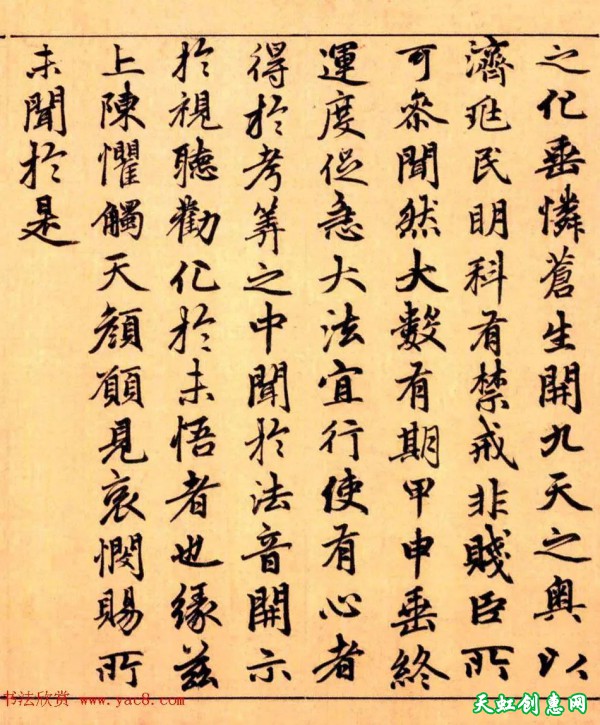 之化垂憐蒼生開九天之奧以
濟兆民明科有禁戒非賤臣所
可叅聞然大數有期甲申垂終
運度促急大法宜行使有心者
得於考筭之中聞於法音開示
於視聽勸化於未悟者也緣茲
上陳懼觸天顏願見哀憫賜所
未聞於是
书法欣赏 www.yac8.com
天虹创惠网